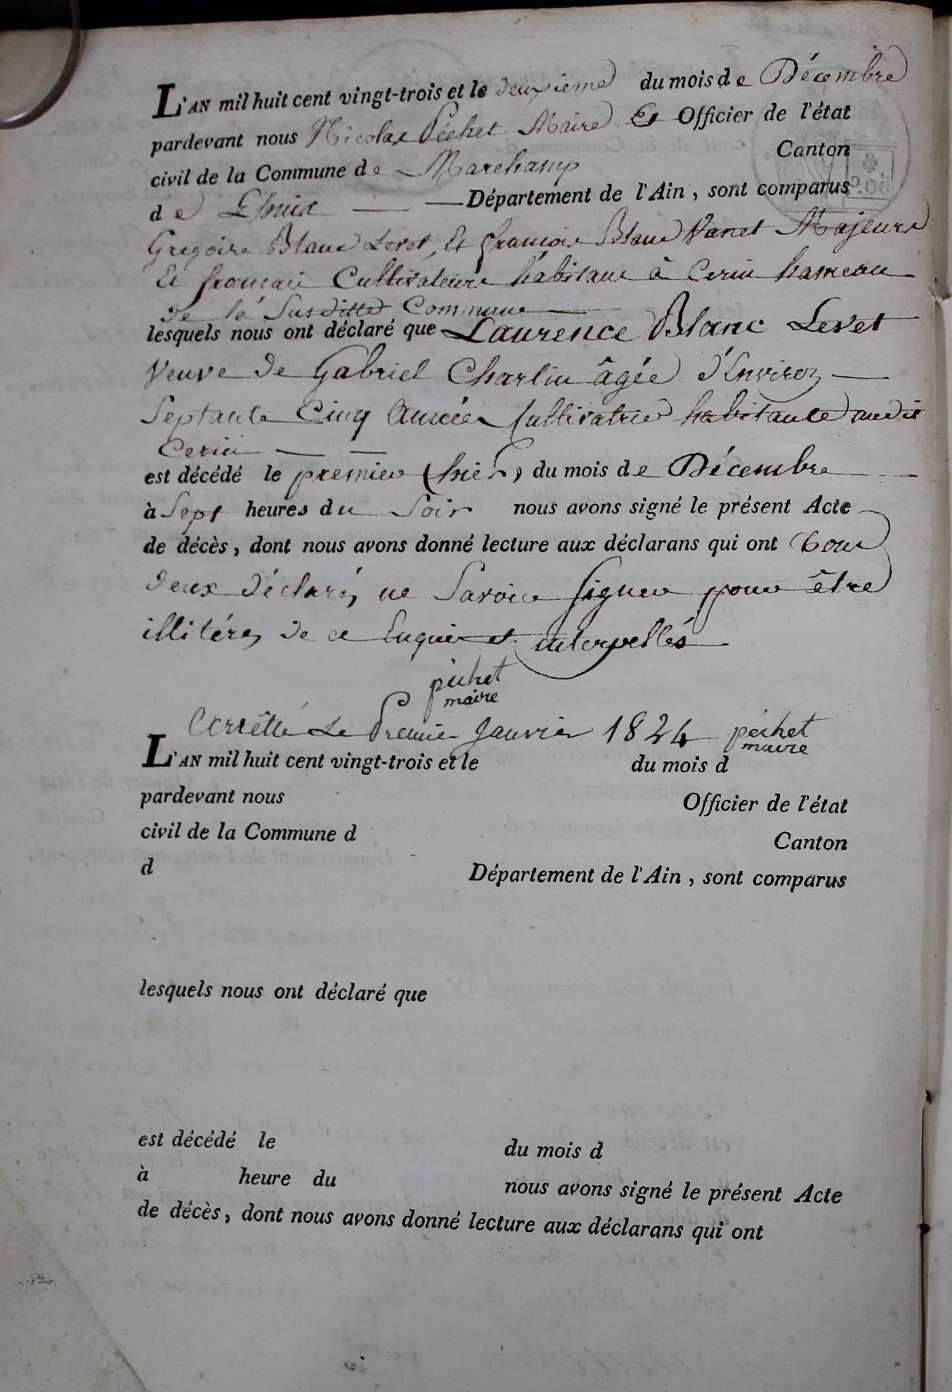 L'AN mil huit cent vingt-trois et le deuxieme du mois de Décembre
pardevant nous Nicolas Péchet Maire Et Officier de l'état
civil de la Commune de Marchamp Canton
de Lhuix Département de l'Ain, sont comparus
Gregoire Blanc Levet, Et françois Blanc Vanet Majeurs
Et francais Cultivateurs habitans à Cerin hameau
de la Susditte Commune
lesquels nous ont déclaré que Laurence Blanc Levet
Veuve de Gabriel Charlin âgée d'Environ
Septante Cinq Années Cultivatrice habitante audit
Cerin
est décédé le premier (hier) du mois de Décembre
à Sept heures du Soir nous avons signé le présent Acte
de décès, dont nous avons donné lecture aux déclarans qui ont tous
deux déclarés ne Savoir Signer pour être
illitérés de ce Enquis et interpellés
péchet
maire
Arrêtté Le Premier Janvier 1824 péchet
maire
L'AN mil huit cent vingt-trois et le du mois d
pardevant nous Officier de l'état
civil de la Commune d Canton
d Département de l'Ain, sont comparus
lesquels nous ont déclaré que
est décédé le du mois d
à heure du nous avons signé le présent Acte
de décès, dont nous avons donné lecture aux déclarans qui ont